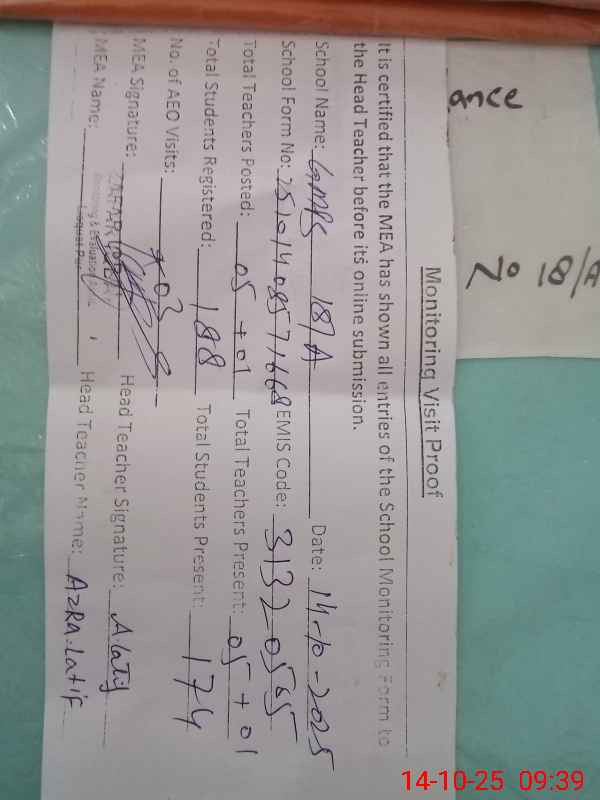 ance
No 18/A
Monitoring Visit Proof
It is certified that the MEA has shown all entries of the School Monitoring Form to
the Head Teacher before its online submission.
School Name: GMPS 18/A Date: 14-10-2025
School Form No: EMIS Code: 31320565
Total Teachers Posted: 05 + 01 Total Teachers Present: 05 + 01
Total Students Registered: 188 Total Students Present: 174
No. of AEO Visits: 03
MEA Signature: Head Teacher Signature: ALatif
MEA Name: Head Teacher Name: AZRA Latif
ZAFAR
Monitoring & Evaluation
Liaquat Pur
14-10-25 09:39